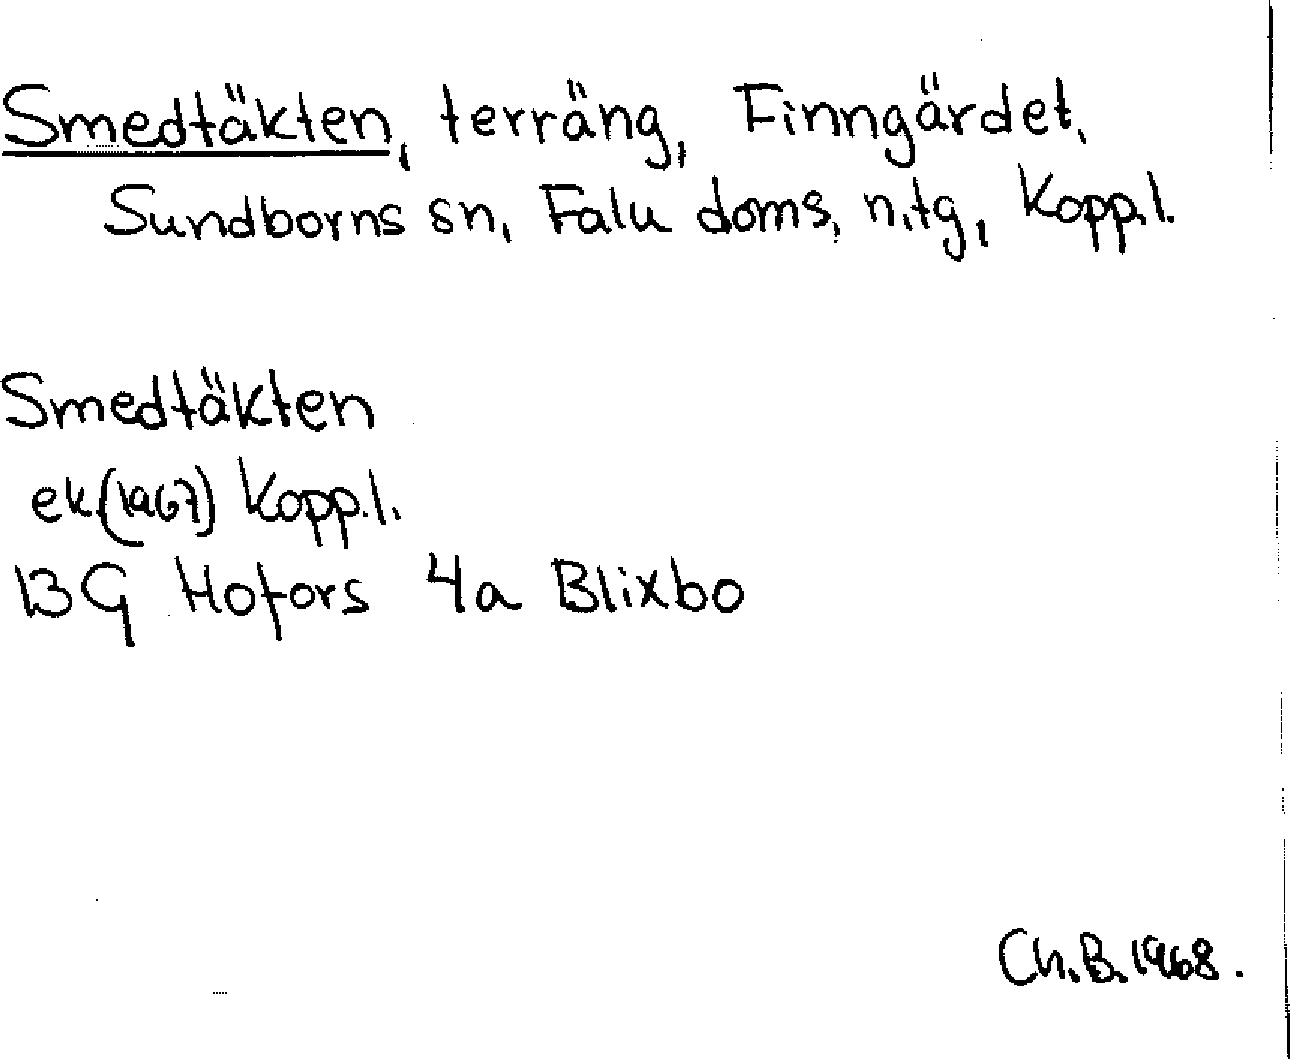 Smedtäkten, terräng, Finngärdet,
Sundborns sn, Falu doms, n.tg, Kopp.l.
Smedtäkten
ek(1967) Kopp.l.
13G Hofors 4a Blixbo
Ch.B. 1968.